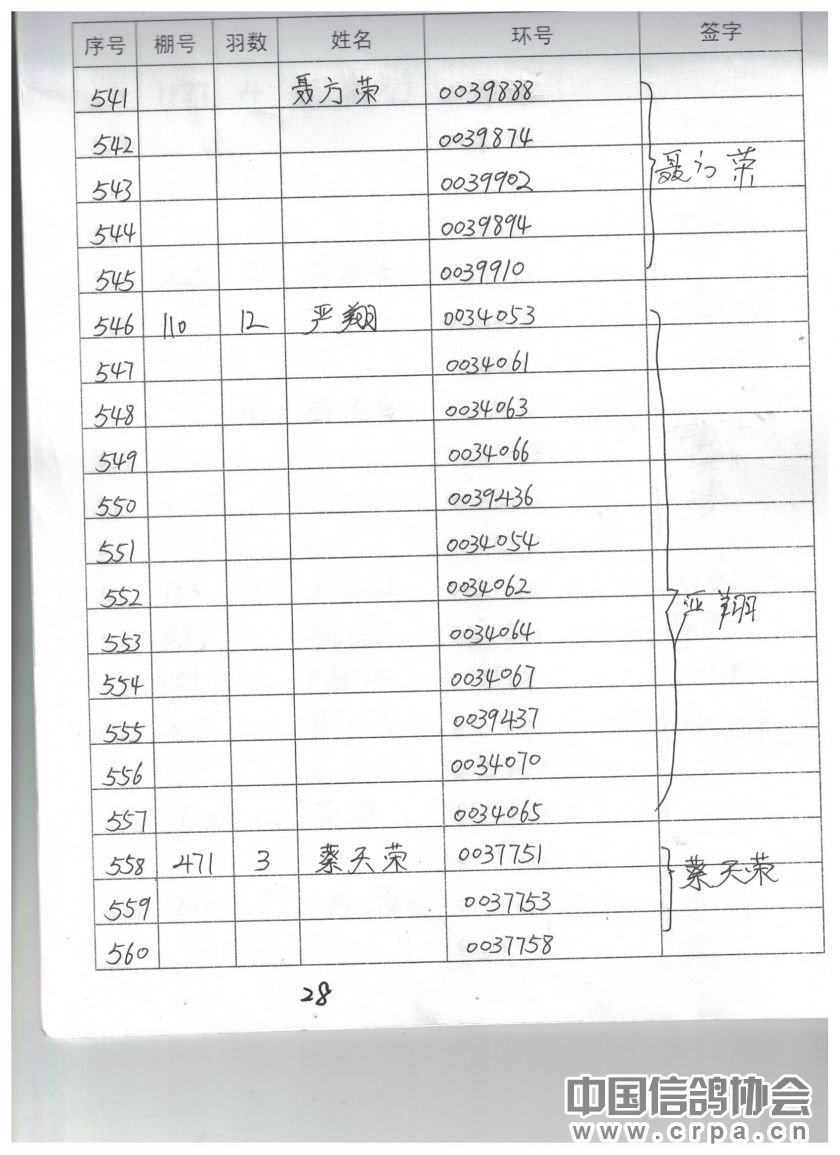 序号 棚号 羽数 姓名 环号 签字
541 聂方荣 0039888
542 0039874
543 0039902 聂方荣
544 0039894
545 0039910
546 110 12 严翔 0034053
547 0034061
548 0034063
549 0034066
550 0039436
551 0034054
552 0034062 严翔
553 0034064
554 0034067
555 0039437
556 0034070
557 0034065
558 471 3 蔡天荣 0037751 蔡天荣
559 0037753
560 0037758
28
中国信鸽协会
www.crpa.cn